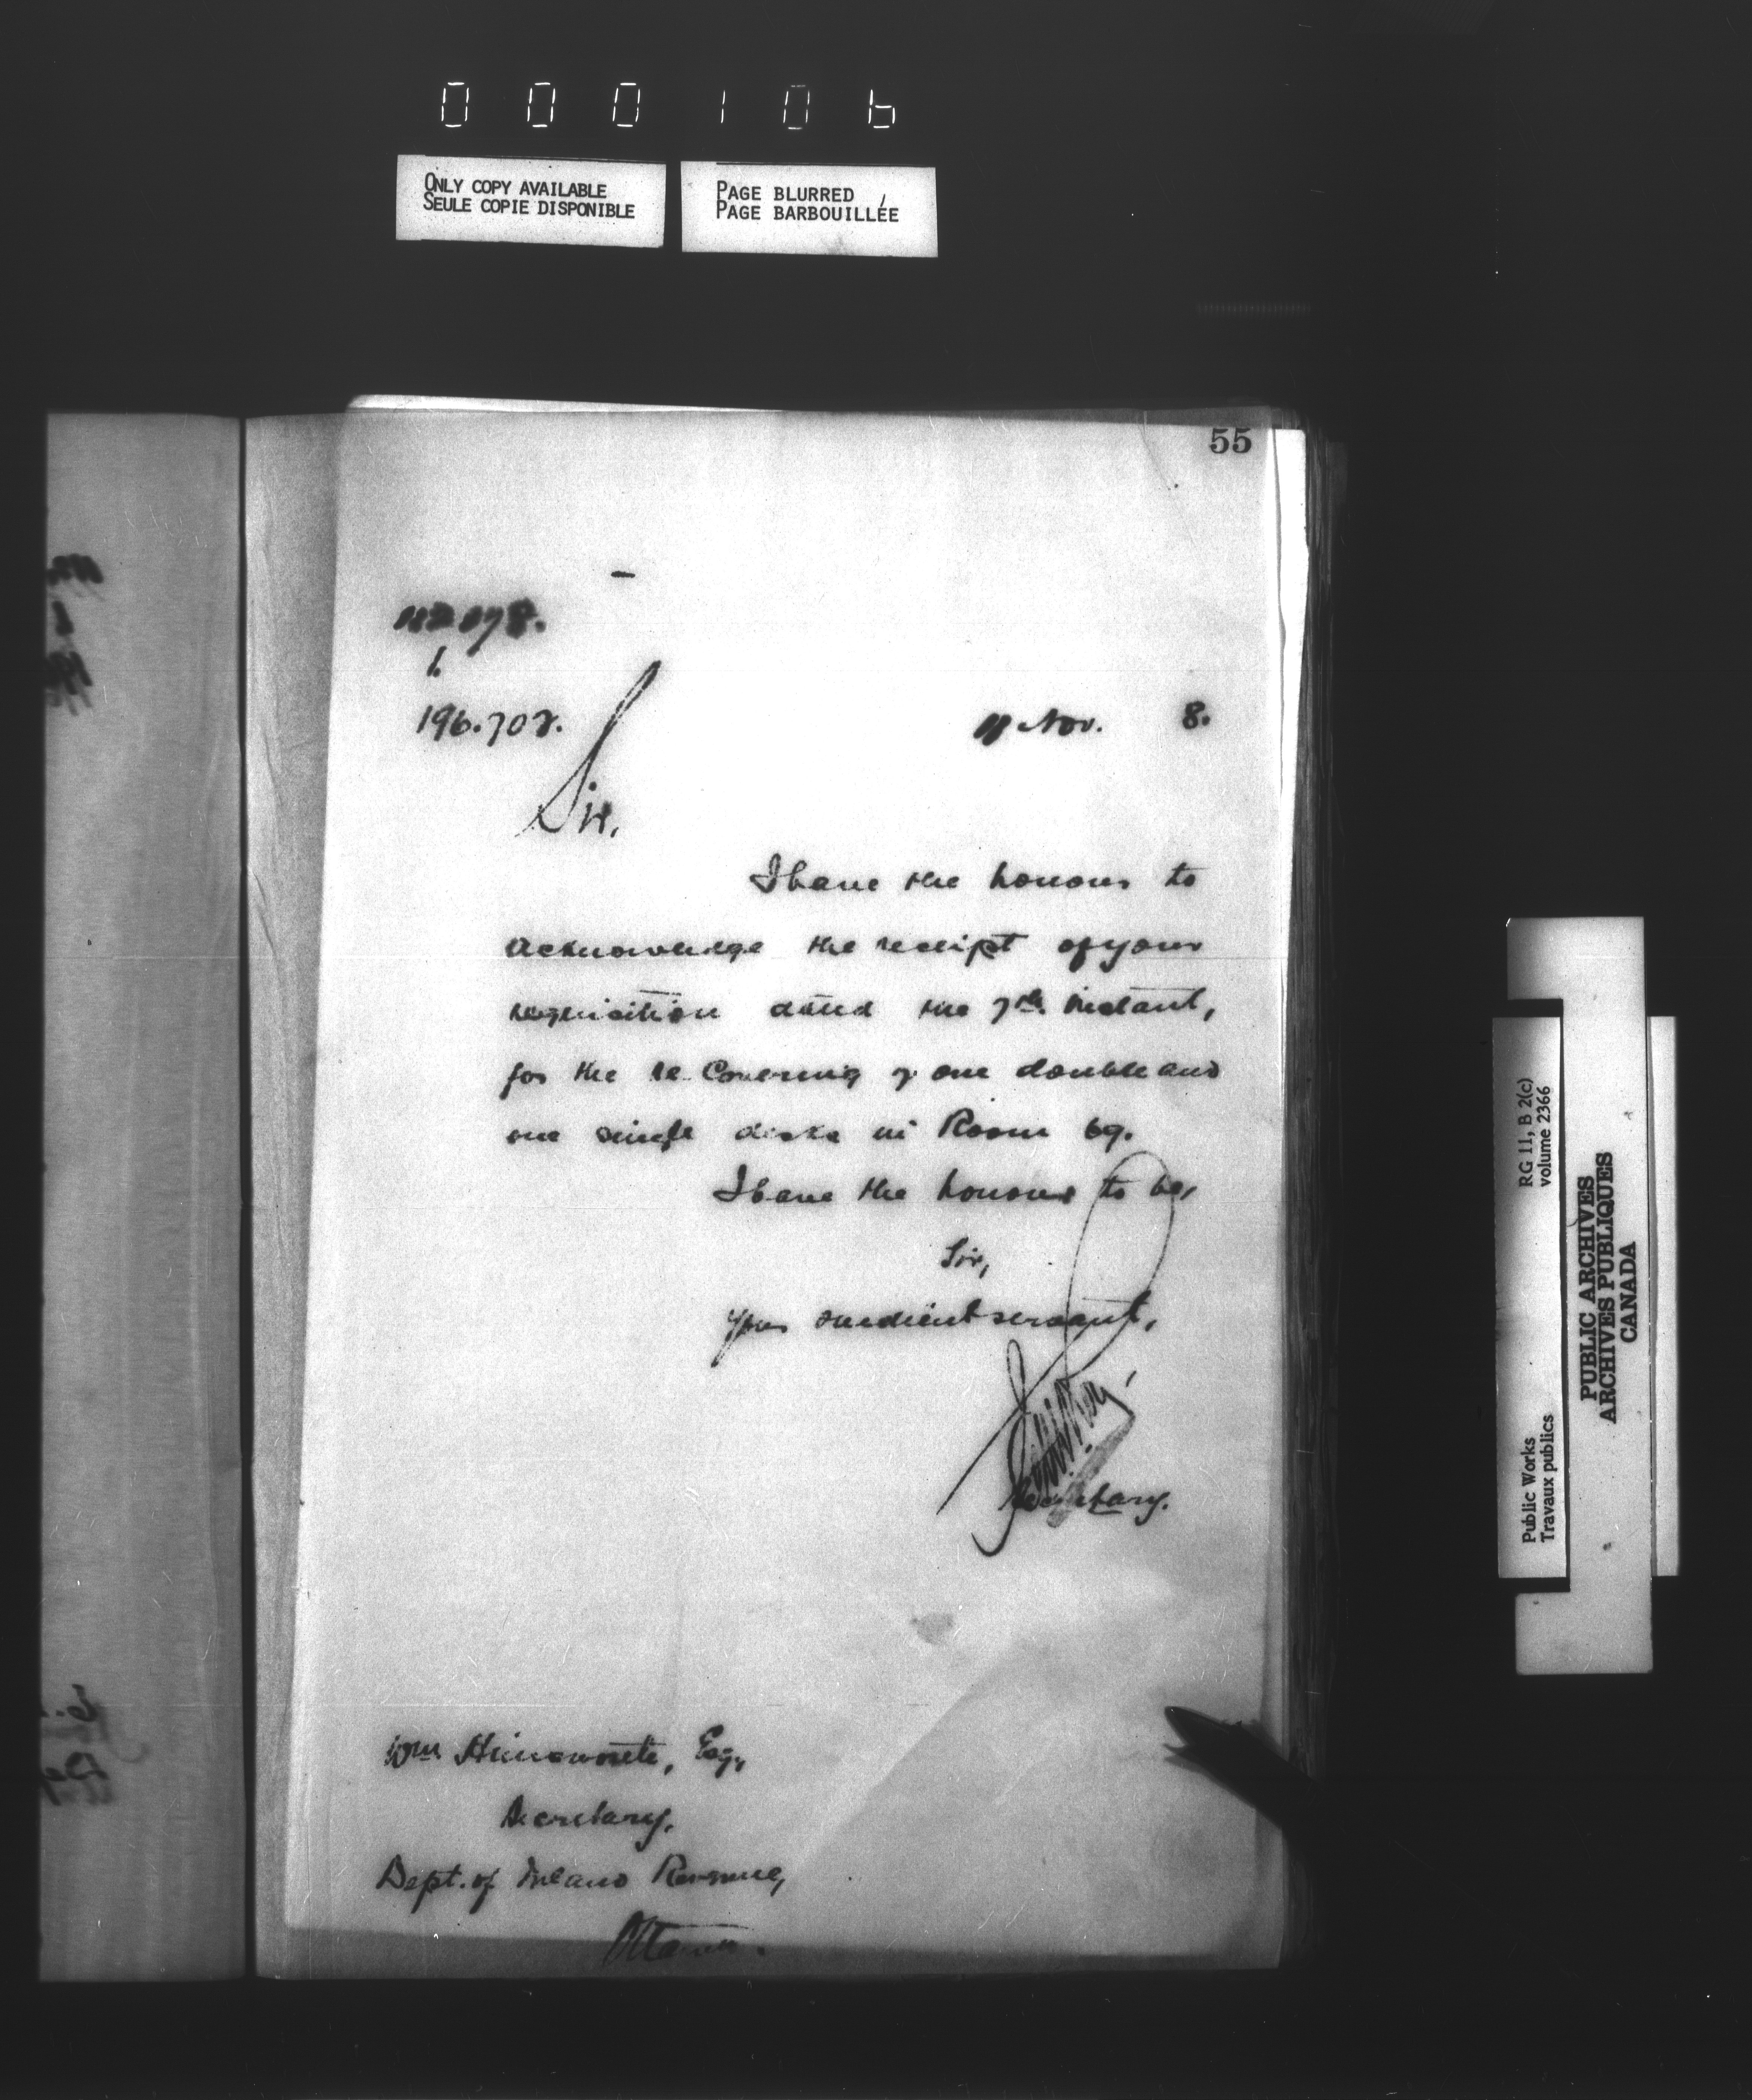 000106
ONLY COPY AVAILABLE
SEULE COPIE DISPONIBLE
PAGE BLURRED
PAGE BARBOUILLÉE
55
1.
196.702.
Nov. 8.
Sir,
I have the honour to
acknowledge the receipt of your
requisition dated the 7th instant,
for the re-covering of one double and
one single desks in Room 69.
I have the honour to be,
Sir,
Your obedient servant,
Secretary.
Wm Himsworth, Esq,
Secretary,
Dept. of Inland Revenue,
Ottawa.
RG 11, B 2(c)
volume 2366
Public Works
Travaux publics
PUBLIC ARCHIVES
ARCHIVES PUBLIQUES
CANADA